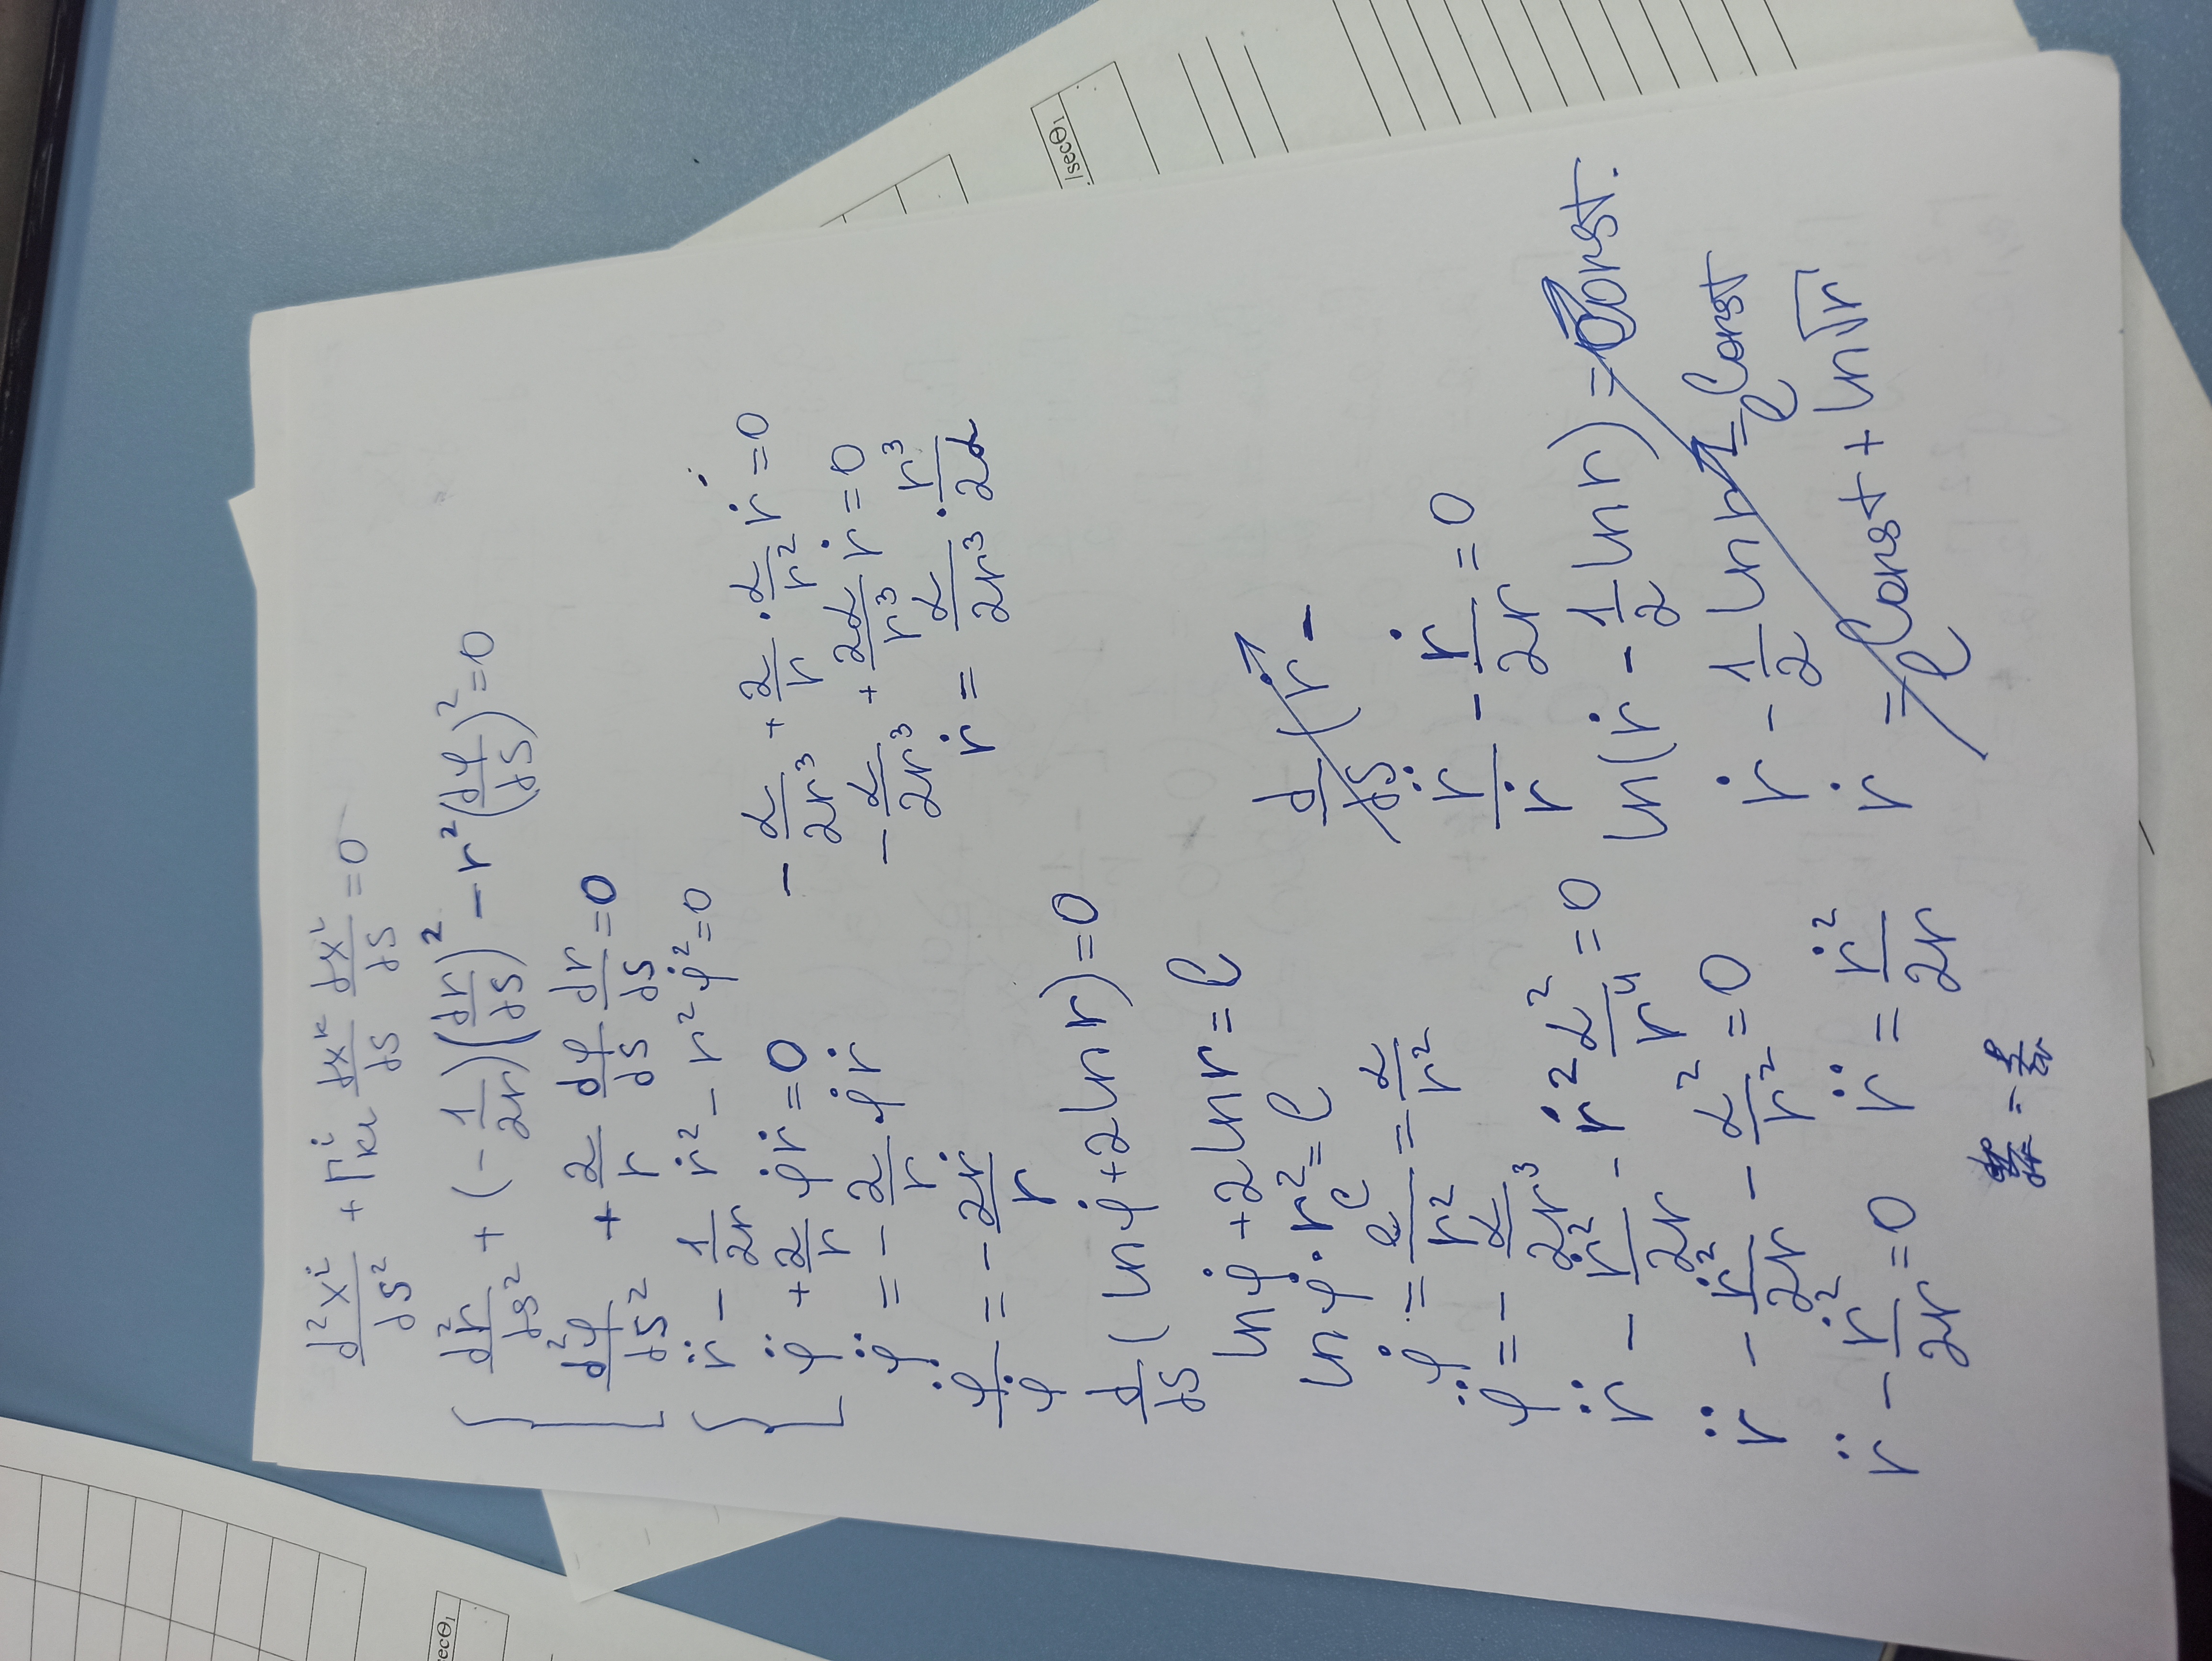 secΘ₁
d²xⁱ/ds² + Γⁱₖₗ dxᵏ/ds dxˡ/ds = 0
d²r/ds² + (-1/2r)(dr/ds)² - r²(dφ/ds)² = 0
d²φ/ds² + 2/r dφ/ds dr/ds = 0
r̈ - 1/2r ṙ² - r² φ̇² = 0
φ̈ + 2/r φ̇ṙ = 0
φ̈ = - 2/r · φ̇ṙ
φ̈/φ̇ = - 2ṙ/r
d/ds (ln φ̇ + 2 ln r) = 0
ln φ̇ + 2 ln r = C
ln φ̇ · r² = C
φ̇ = e^C/r² = α/r²
φ̈ = - α/2r³
r̈ - ṙ²/2r - ṙ² α²/r⁴ = 0
r̈ - ṙ²/2r - α²/r² = 0
r̈ - ṙ²/2r = 0 r̈ = ṙ²/2r
- α/2r³ + 2/r · α/r² ṙ = 0
- α/2r³ + 2α/r³ ṙ = 0
ṙ = α/2r³ · r³/2α
d/ds (ṙ -
r̈/ṙ - ṙ/2r = 0
ln(ṙ - 1/2 ln r) = Const.
ṙ - 1/2 ln r = e^Const
ṙ = e^Const + ln√r
/secΘ₁